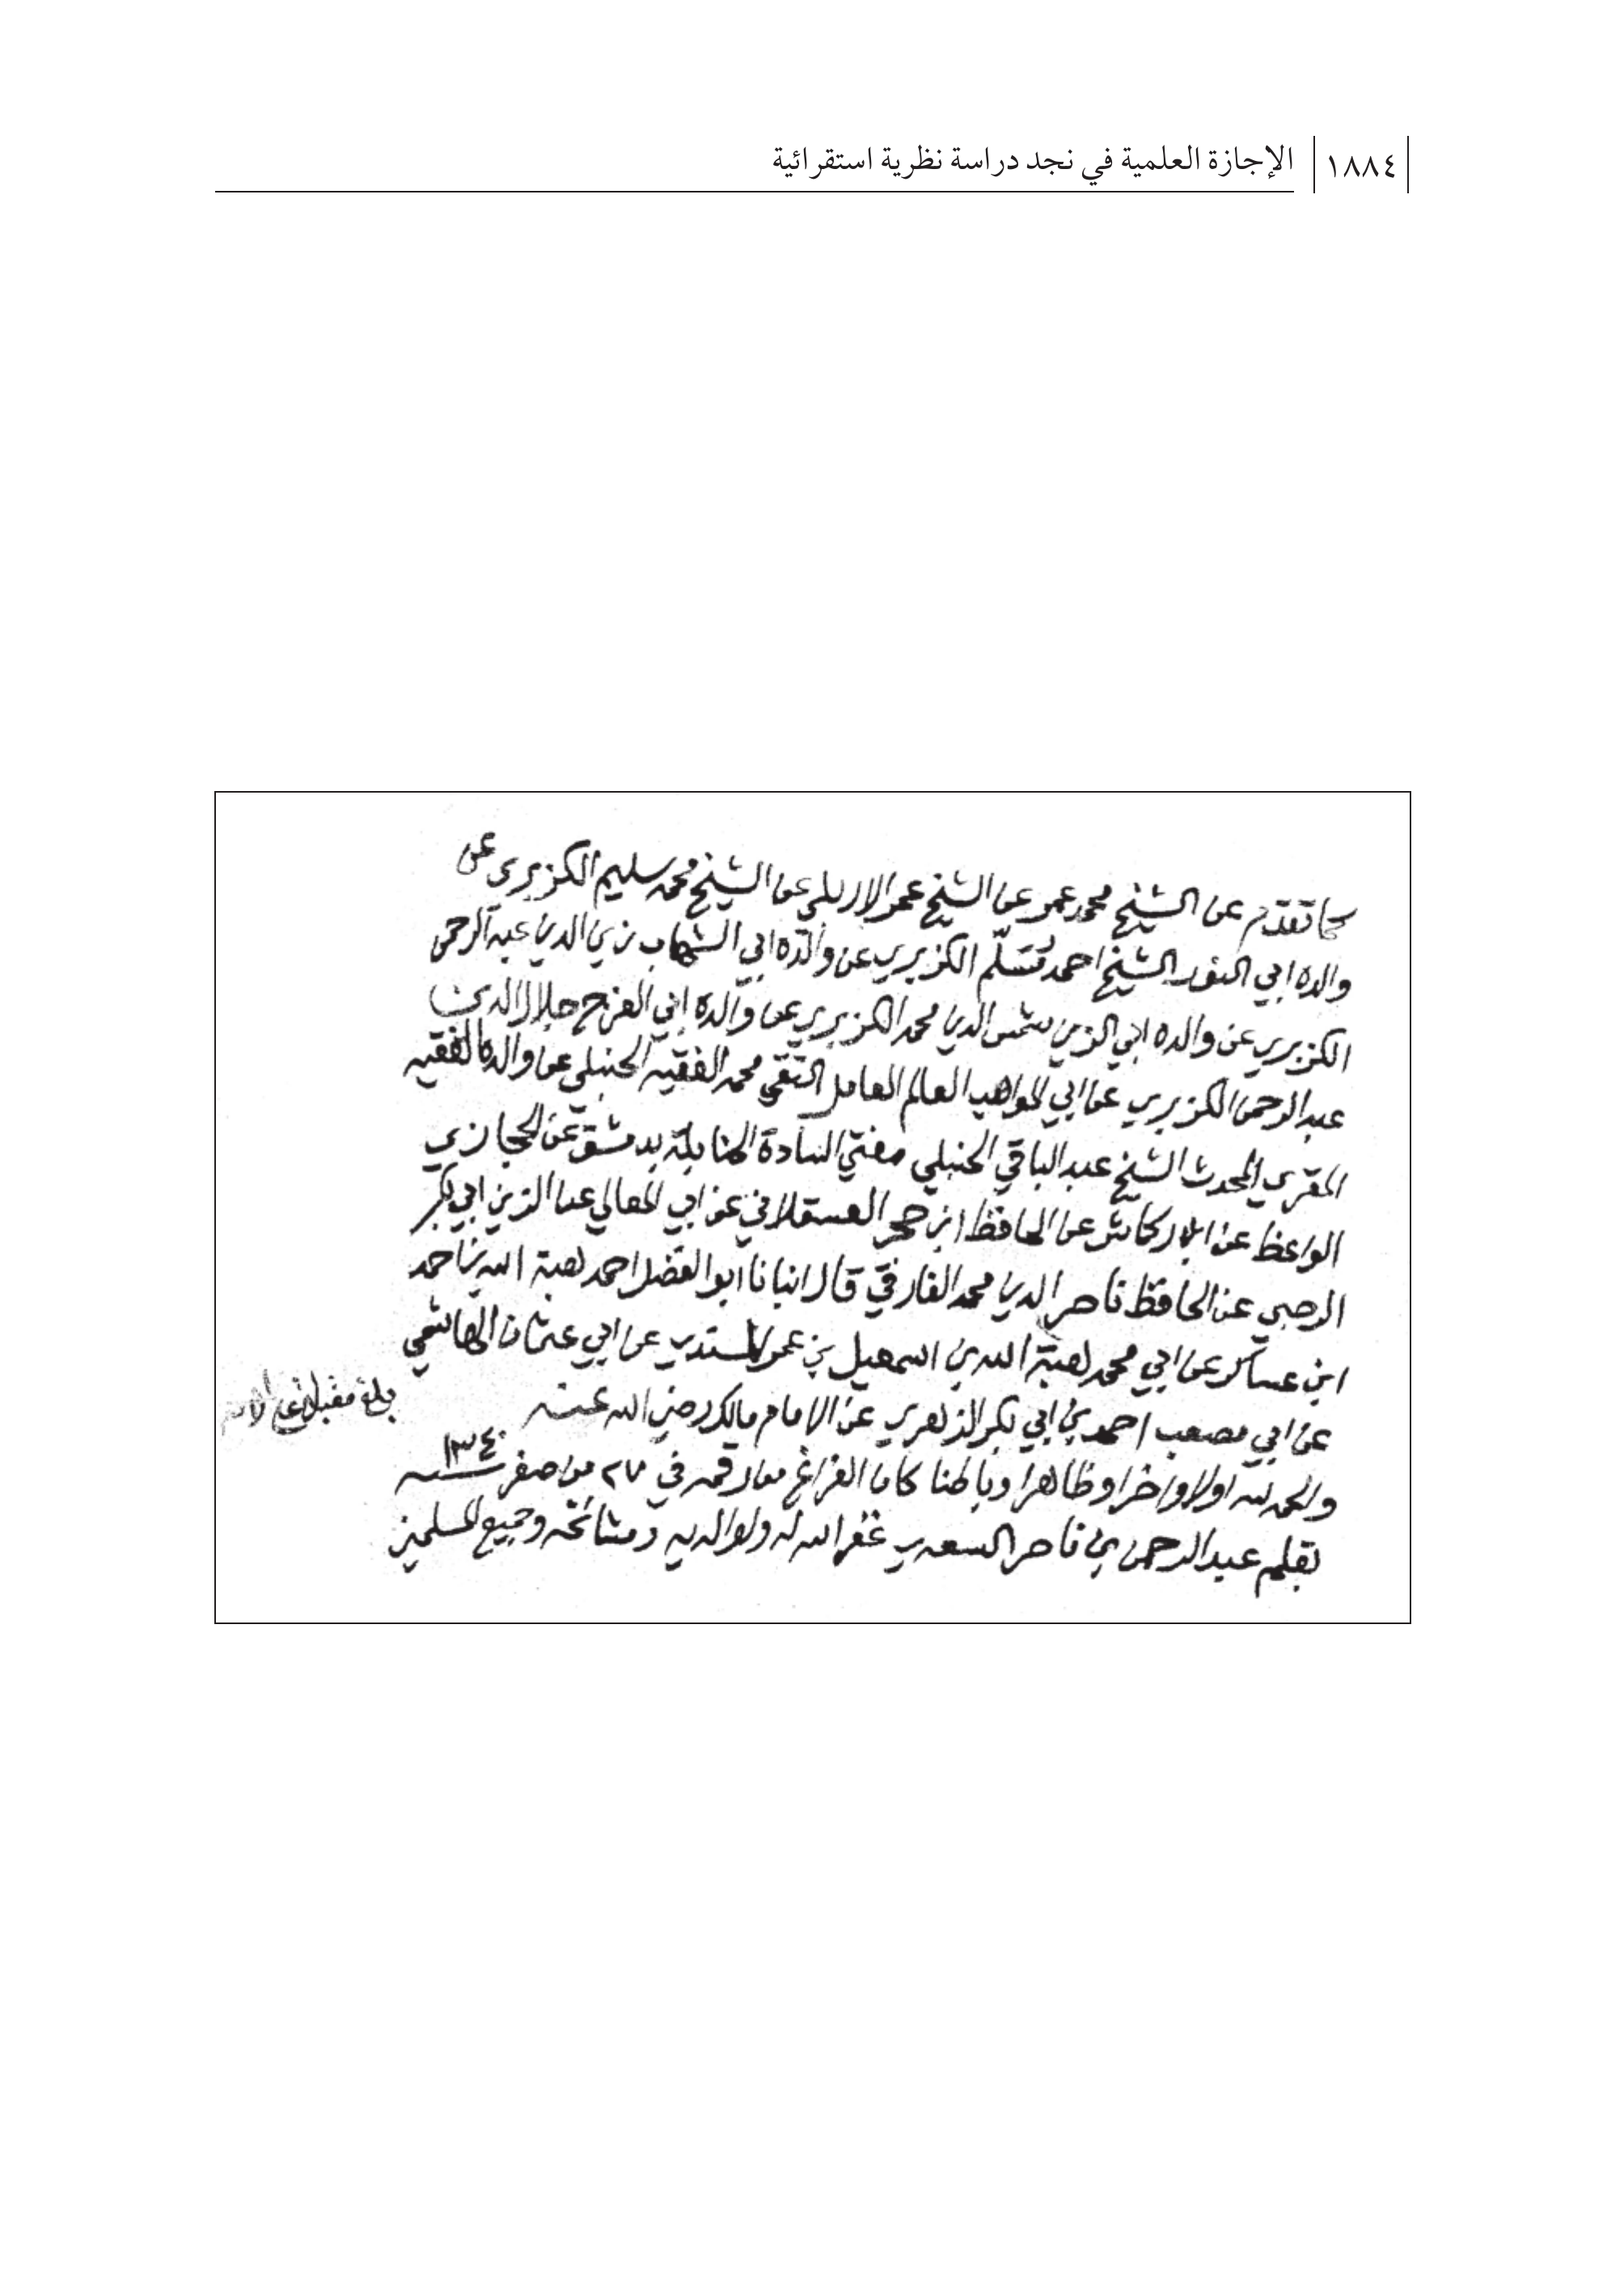 ١٨٨٤ الإجازة العلمية في نجد دراسة نظرية استقرائية
كما تقدم عن الشيخ محمد عمر عن الشيخ عمر الاربلي عن الشيخ محمد سليم الكزبري عن
والده ابي النور الشيخ احمد مسلم الكزبري عن والده ابي الشهاب زين الدين عبد الرحمن
الكزبري عن والده ابي الزين شمس الدين محمد الكزبري عن والده ابي الفرج جلال الدين
عبد الرحمن الكزبري عن ابي المواهب العالم العامل التقي محمد الفقيه الحنبلي عن والده الفقيه
المقري المحدث الشيخ عبد الباقي الحنبلي مفتي السادة الحنابلة بدمشق عن الحجازي
الواعظ عن ابن اركماش عن الحافظ ابن حجر العسقلاني عن ابي المعالي عن الزين ابي بكر
الرحبي عن الحافظ ناصر الدين محمد الفارقي قال انبانا ابو الفضل احمد هبة الله بن احمد
ابن عساكر عن ابي محمد هبة الله بن اسمعيل بن عمر عن ابي عثمان الهاشمي
عن ابي مصعب احمد بن ابي بكر الزهري عن الامام مالك رضي الله عنه
والحمد لله اولا واخرا وظاهرا وباطنا كان الفراغ من رقمه في ٢٧ من صفر سنة ١٣٤٠
بقلم عبد الرحمن بن ناصر السعدي غفر الله له ولوالديه ومشائخه وجميع المسلمين
بلغ مقبلة على